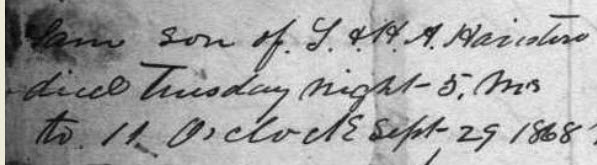 Sam son of. S. & H. A. Hairston
died Tuesday night 5, Ms
to. 11 Oclock Sept 29 1868